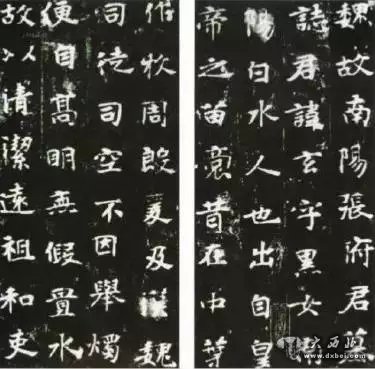 魏故南陽張府君墓
誌君諱玄字黑女南
陽白水人也出自皇
帝之苗裔昔在中葉
作牧周殷爰及漢魏
司徒司空不因舉燭
便自高明无假置水
故以清潔遠祖和吏
大西北网
www.dxbei.com